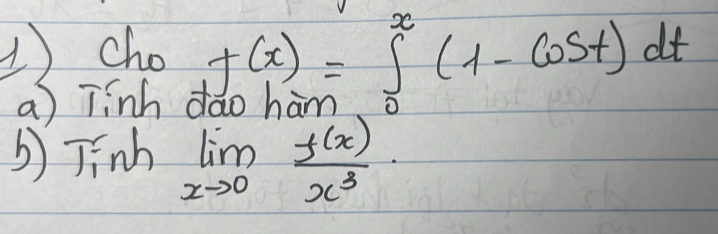 1) Cho f(x) = ∫₀ˣ (1 - cost) dt
a) Tính đạo hàm
b) Tính lim_{x→0} f(x)/x³.